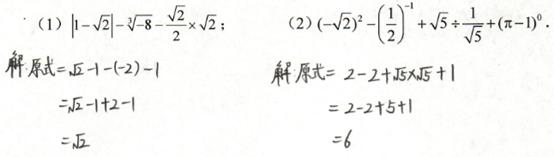 (1) |1-√2|-∛-8-√2/2×√2;
(2) (-√2)²-(1/2)⁻¹+√5÷1/√5+(π-1)⁰.
解:原式=√2-1-(-2)-1
=√2-1+2-1
=√2
解:原式= 2-2+√5×√5+1
= 2-2+5+1
=6